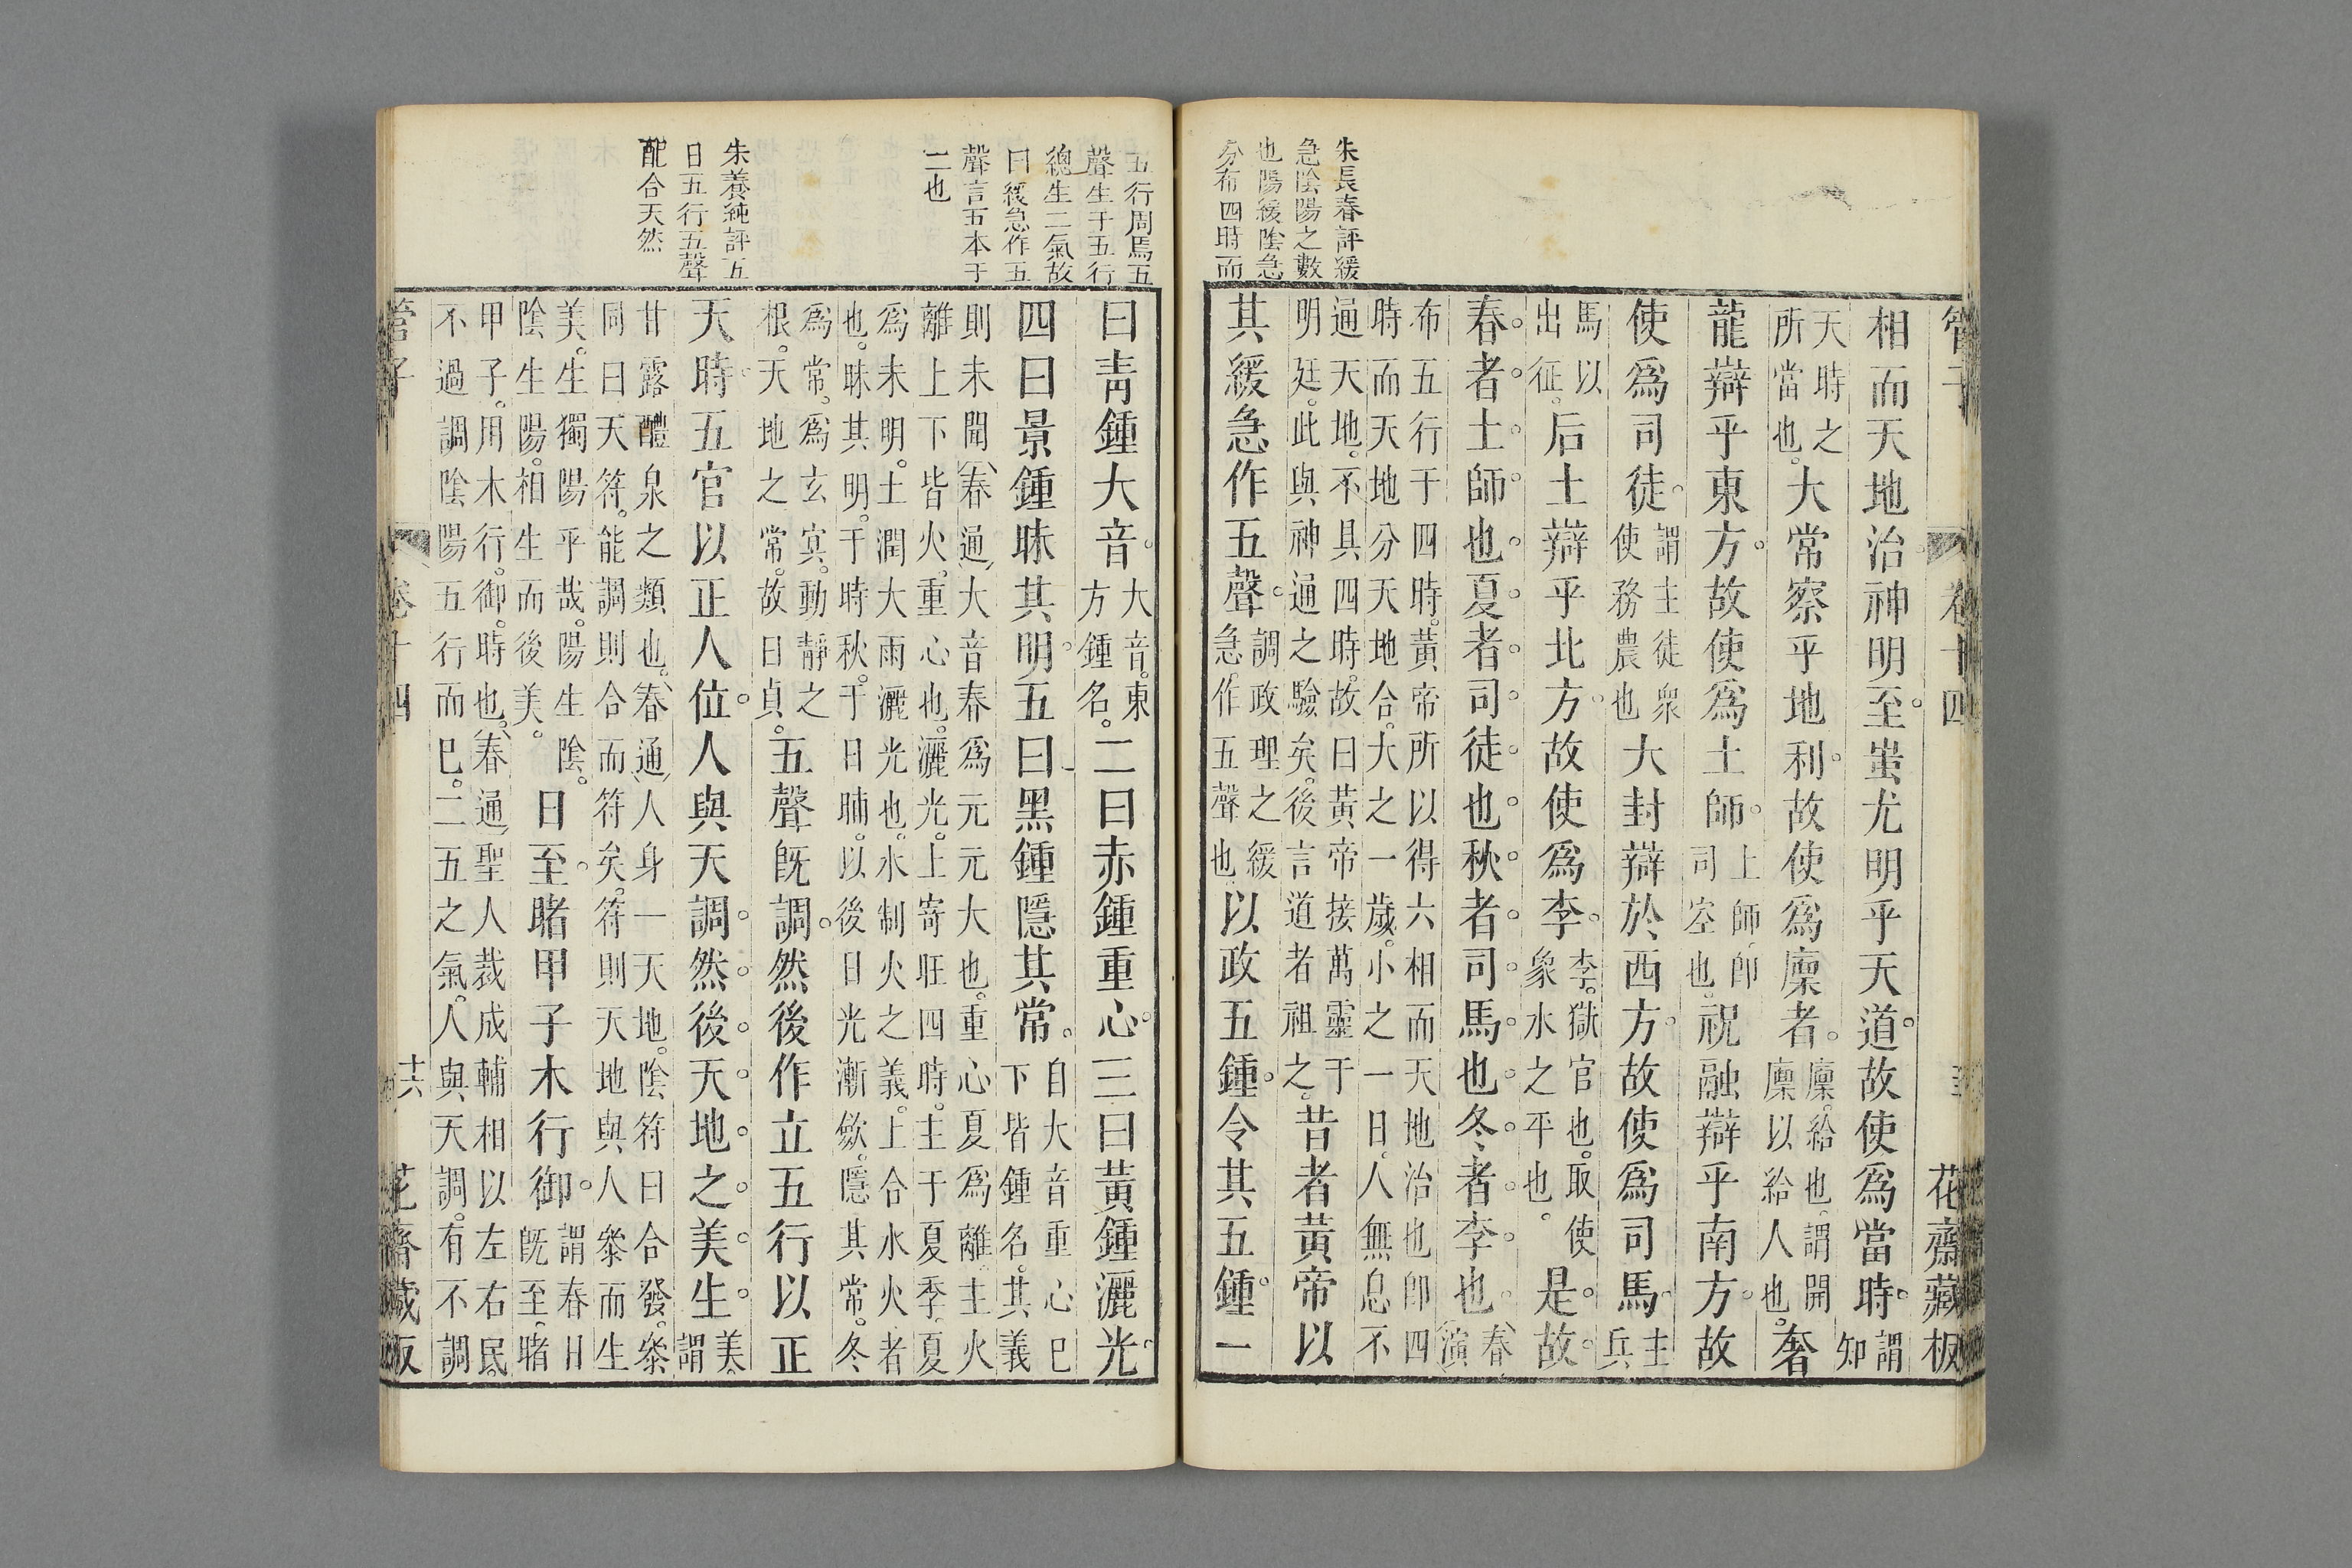 管子 卷十四 花齋藏板
朱長春評緩
急陰陽之數
也陽緩陰急
分布四時而
相而天地治神明至。蚩尤明乎天道。故使爲當時。謂知
天時之所當也。大常察乎地利。故使爲廩者。廩。給也。謂開廩以給人也。奢
龍辯乎東方。故使爲土師。土師。卽司空也。祝融辯乎南方。故
使爲司徒。謂主徒衆使務農也大封辯於西方。故使爲司馬。主兵
馬以出征。后土辯乎北方。故使爲李。李。獄官也。取使象水之平也。是。故。
春。者。土。師。也。夏。者。司。徒。也。秋。者。司。馬。也。冬。者。李。也。春演
布五行于四時。黃帝所以得六相而天地治也卽四
時而天地分天地合。大之一歲。小之一日。人無息不
通天地。不具四時。故曰黃帝接萬靈于明廷。此與神通之驗矣。後言道者祖之。昔者黃帝以
其緩急作五聲。調政理之緩急。作五聲也以政五鍾。令其五鍾。一
五行周焉五
聲生于五行
總生二氣故
曰緩急作五
聲言五本于
二也
朱養純評五
日五行五聲
配合天然
曰靑鍾大音。大音。東方鍾名。二曰赤鍾重心。三曰黃鍾灑光。
四曰景鍾昧其明。五曰黑鍾隱其常。自大音重心已下皆鍾名。其義
則未聞(春通)大音春爲元元大也。重心夏爲離。主火
離上下皆火。重心也。灑光。上寄旺四時。主于夏季。夏
爲未明。土潤大雨灑光也。水制火之義。上合水火者
也。昧其明。于時秋。于日晡。以後日光漸歛。隱其常。冬
爲常。爲玄冥。動靜之根。天地之常。故曰貞。五聲旣調。然後作立五行以正
天時。五官以正人位。人與天調。然。後。天。地。之。美。生。美。謂
甘露醴泉之類也。(春通)人身一天地。陰符曰合發。叅
同曰天符。能調則合而符矣。符則天地與人叅而生
美。生獨陽乎哉。陽生陰。陰生陽。相生而後美。日至。睹甲子木行御。謂春日旣至。睹
甲子。用木行。御。時也。(春通)聖人裁成輔相以左右民。
不過調陰陽五行而已。二五之氣。人與天調。有不調
管子 卷十四 十六 花齋藏板